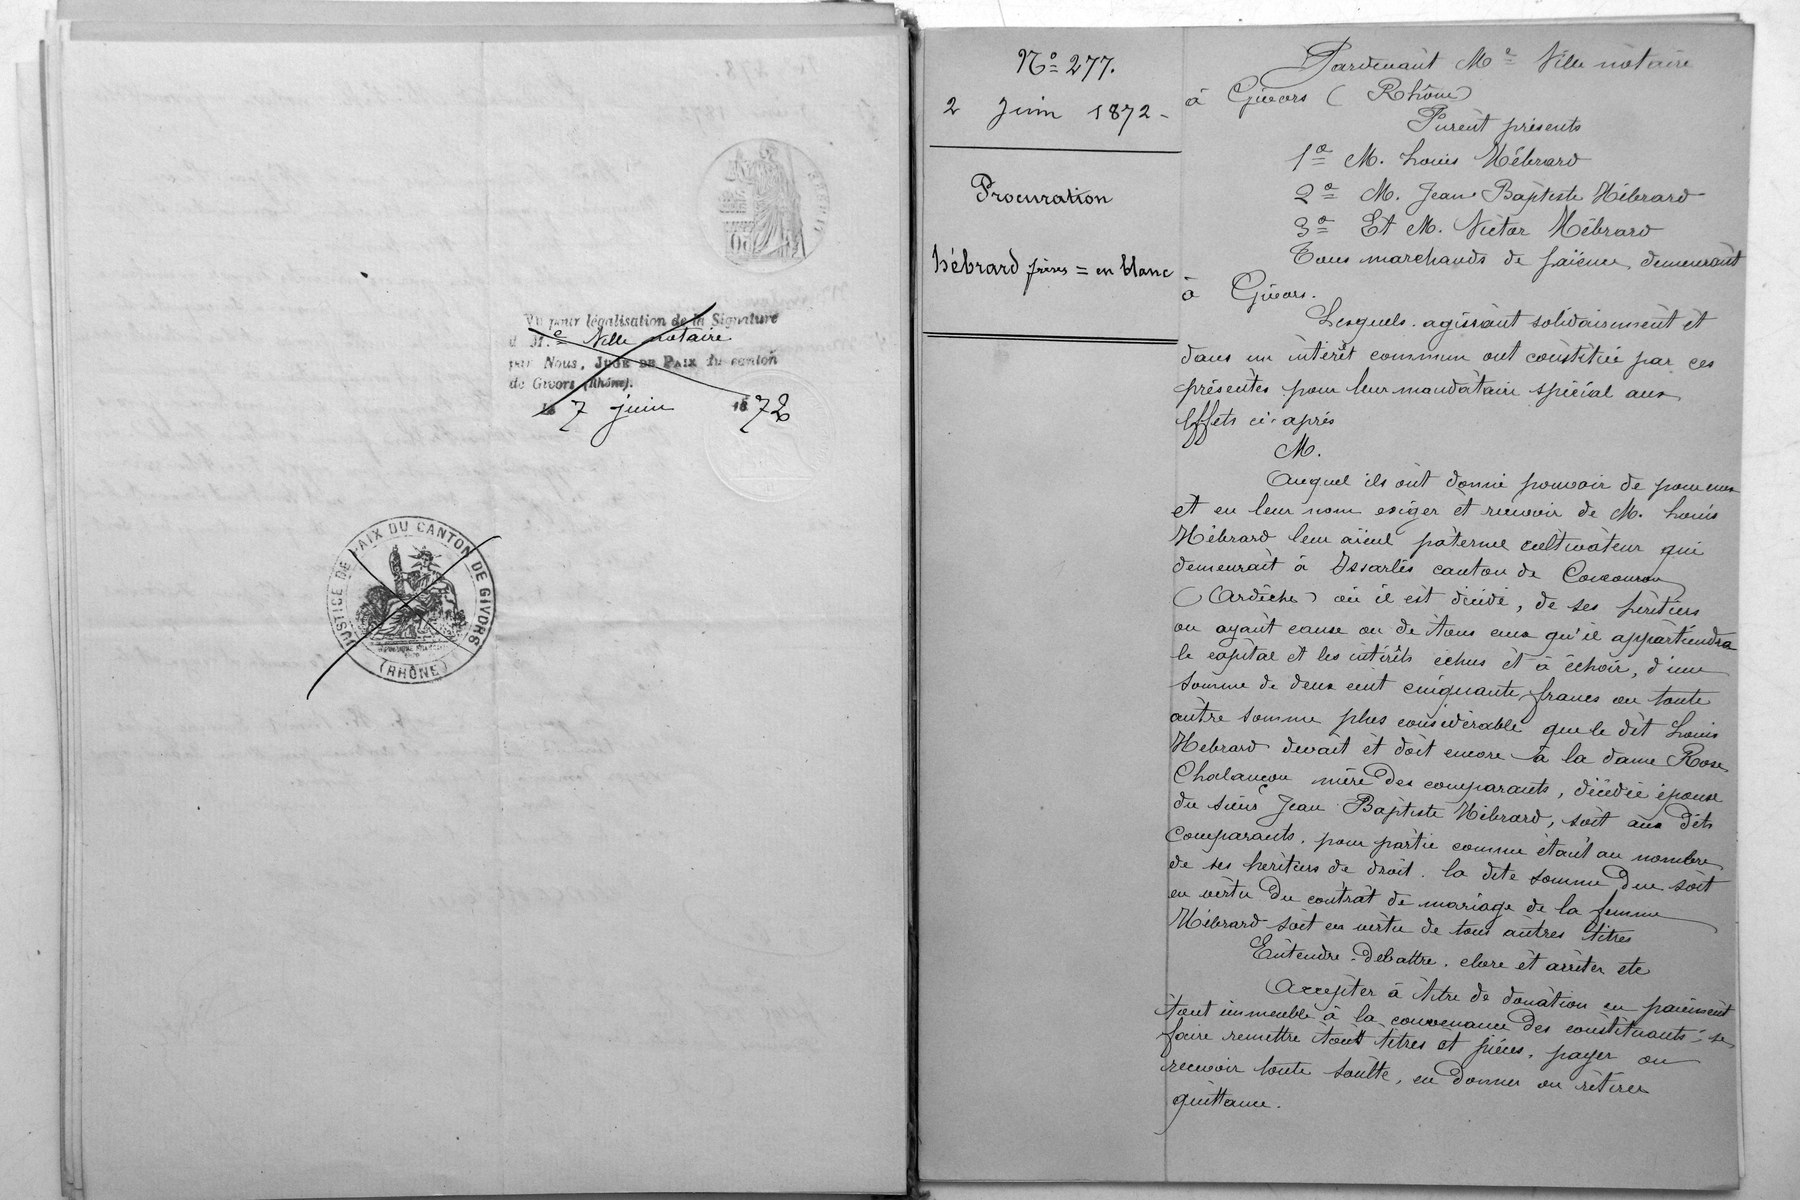 Vu pour légalisation de la Signature
d M.e Ville notaire
par Nous, JUGE DE PAIX du canton
de Givors (Rhône).
le 7 juin 1872
JUSTICE DE PAIX DU CANTON DE GIVORS
(RHÔNE)
No 277.
2 Juin 1872 -
Procuration
hébrard frères = en blanc
Pardevant Me Ville notaire
à Givors (Rhône)
Furent présents
1o M. Louis Hébrard
2o M. Jean Baptiste Hébrard
3o Et M. Victor Hébrard
Tous marchands de faience, demeurant
à Givors.
Lesquels. agissant solidairement et
dans un intérêt commun ont constitué par ces
présentes pour leur mandataire spécial aux
effets ci-après
M.
Auquel ils ont donné pouvoir de pour eux
et en leur nom exiger et recevoir de M. Louis
Hébrard leur aïeul paternel cultivateur qui
demeurait à Issarlès canton de Coucouron
(Ardèche) où il est décédé, de ses héritiers
ou ayant cause ou de tous ceux qu'il appartiendra
le capital et les intérêts échus et à échoir, d'une
somme de deux cent cinquante francs ou toute
autre somme plus considérable que le dit Louis
Hebrard devait et doit encore à la dame Rose
Chalancon mère des comparants, décédée épouse
du sieur Jean Baptiste Hébrard, soit aux dits
comparants. pour partie comme étant au nombre
de ses héritiers de droit. la dite somme due soit
en vertu du contrat de mariage de la femme
Hébrard soit en vertu de tous autres titres
Entendre. débattre. clore et arrêter etc
Accepter à titre de donation en paiement
tout immeuble à la convenance des constituants; se
faire remettre tout titres et pièces. payer ou
recevoir toute soulte, en donner ou retirer
quittance.